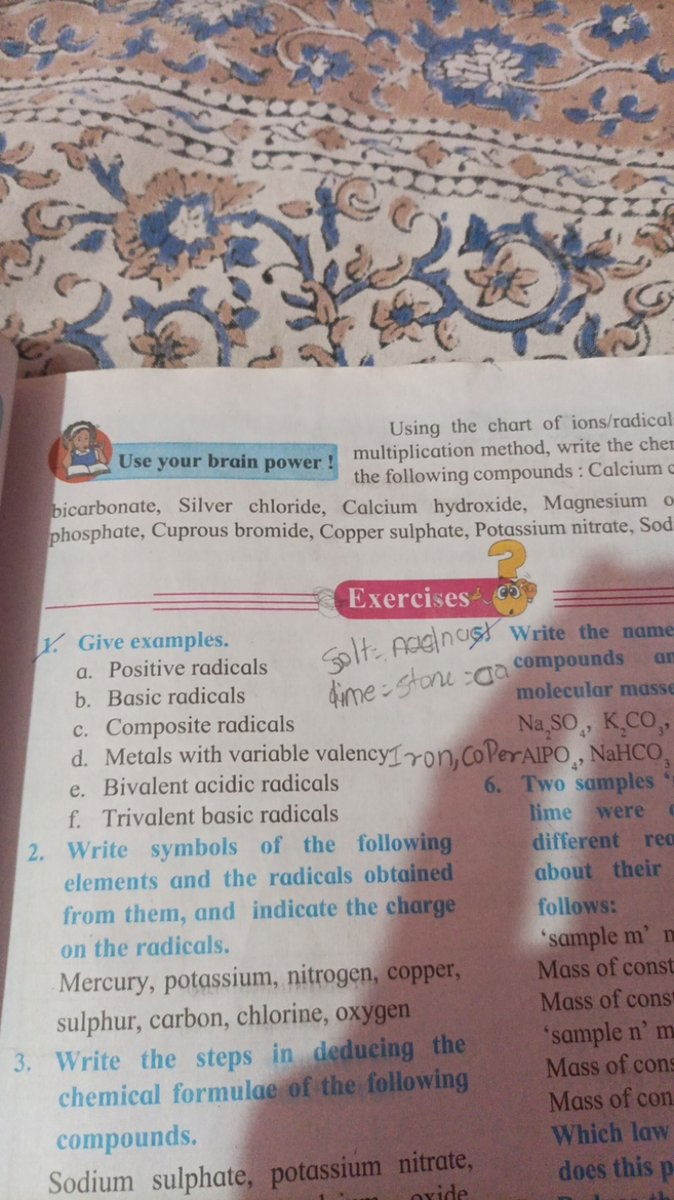 Using the chart of ions/radical
Use your brain power !
multiplication method, write the
the following compounds : Calcium
bicarbonate, Silver chloride, Calcium hydroxide, Magnesium
phosphate, Cuprous bromide, Copper sulphate, Potassium nitrate, Sod
Exercises
1. Give examples.
a. Positive radicals
b. Basic radicals
c. Composite radicals
d. Metals with variable valency Iron, CoPer
e. Bivalent acidic radicals
f. Trivalent basic radicals
2. Write symbols of the following
elements and the radicals obtained
from them, and indicate the charge
on the radicals.
Mercury, potassium, nitrogen, copper,
sulphur, carbon, chlorine, oxygen
3. Write the steps in deducing the
chemical formulae of the following
compounds.
Sodium sulphate, potassium nitrate,
oxide
Solt =
dime = stone =
5. Write the name
compounds an
molecular masse
Na₂SO₄, K₂CO₃,
AlPO₄, NaHCO₃
6. Two samples
lime were
different rea
about their
follows:
‘sample m’ m
Mass of const
Mass of const
‘sample n’ m
Mass of cons
Mass of con
Which law
does this p